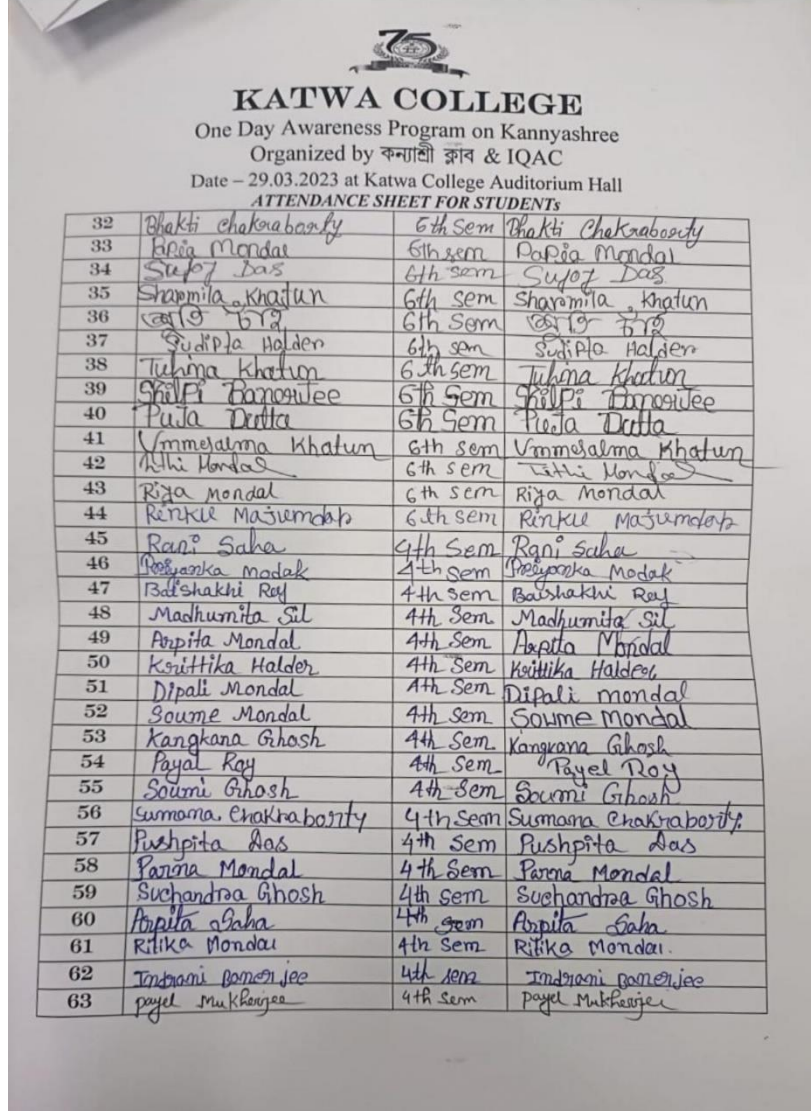 75
KATWA COLLEGE
One Day Awareness Program on Kannyashree
Organized by কন্যাশ্রী ক্লাব & IQAC
Date – 29.03.2023 at Katwa College Auditorium Hall
ATTENDANCE SHEET FOR STUDENTs
32 Bhakti Chakraborty 6th Sem Bhakti Chakraborty
33 Papia Mondal 6th sem Papia Mondal
34 Das 6th sem Das
35 Sharmila Khatun 6th sem Sharmila Khatun
36 6th Sem
37 Sudipta Halder 6th sem Sudipta Halder
38 Tuhina Khatun 6th sem Tuhina Khatun
39 Shilpi Banerjee 6th Sem Shilpi Banerjee
40 Puja Dutta 6th Sem Puja Dutta
41 Ummesalma Khatun 6th sem Ummesalma Khatun
42 Tithi Mondal 6th sem Tithi Mondal
43 Riya Mondal 6th sem Riya Mondal
44 Rinku Majumdar 6th sem Rinku Majumdar
45 Rani Saha 4th Sem Rani Saha
46 Priyanka Modak 4th sem Priyanka Modak
47 Baishakhi Roy 4th sem Baishakhi Roy
48 Madhumita Sil 4th Sem Madhumita Sil
49 Arpita Mondal 4th Sem Arpita Mondal
50 Krittika Halder 4th Sem Krittika Halder
51 Dipali Mondal 4th Sem Dipali mondal
52 Soume Mondal 4th Sem Soume Mondal
53 Kangkana Ghosh 4th Sem Kangkana Ghosh
54 Payal Roy 4th Sem Payel Roy
55 Soumi Ghosh 4th Sem Soumi Ghosh
56 Sumana Chakraborty 4th Sem Sumana Chakraborty.
57 Pushpita Das 4th Sem Pushpita Das
58 Parna Mondal 4th Sem Parna Mondal
59 Suchandra Ghosh 4th Sem Suchandra Ghosh
60 Arpita Saha 4th sem Arpita Saha
61 Ritika Mondal 4th Sem Ritika Mondal.
62 Indrani Banerjee 4th sem Indrani Banerjee
63 payel Mukherjee 4th sem payel Mukherjee